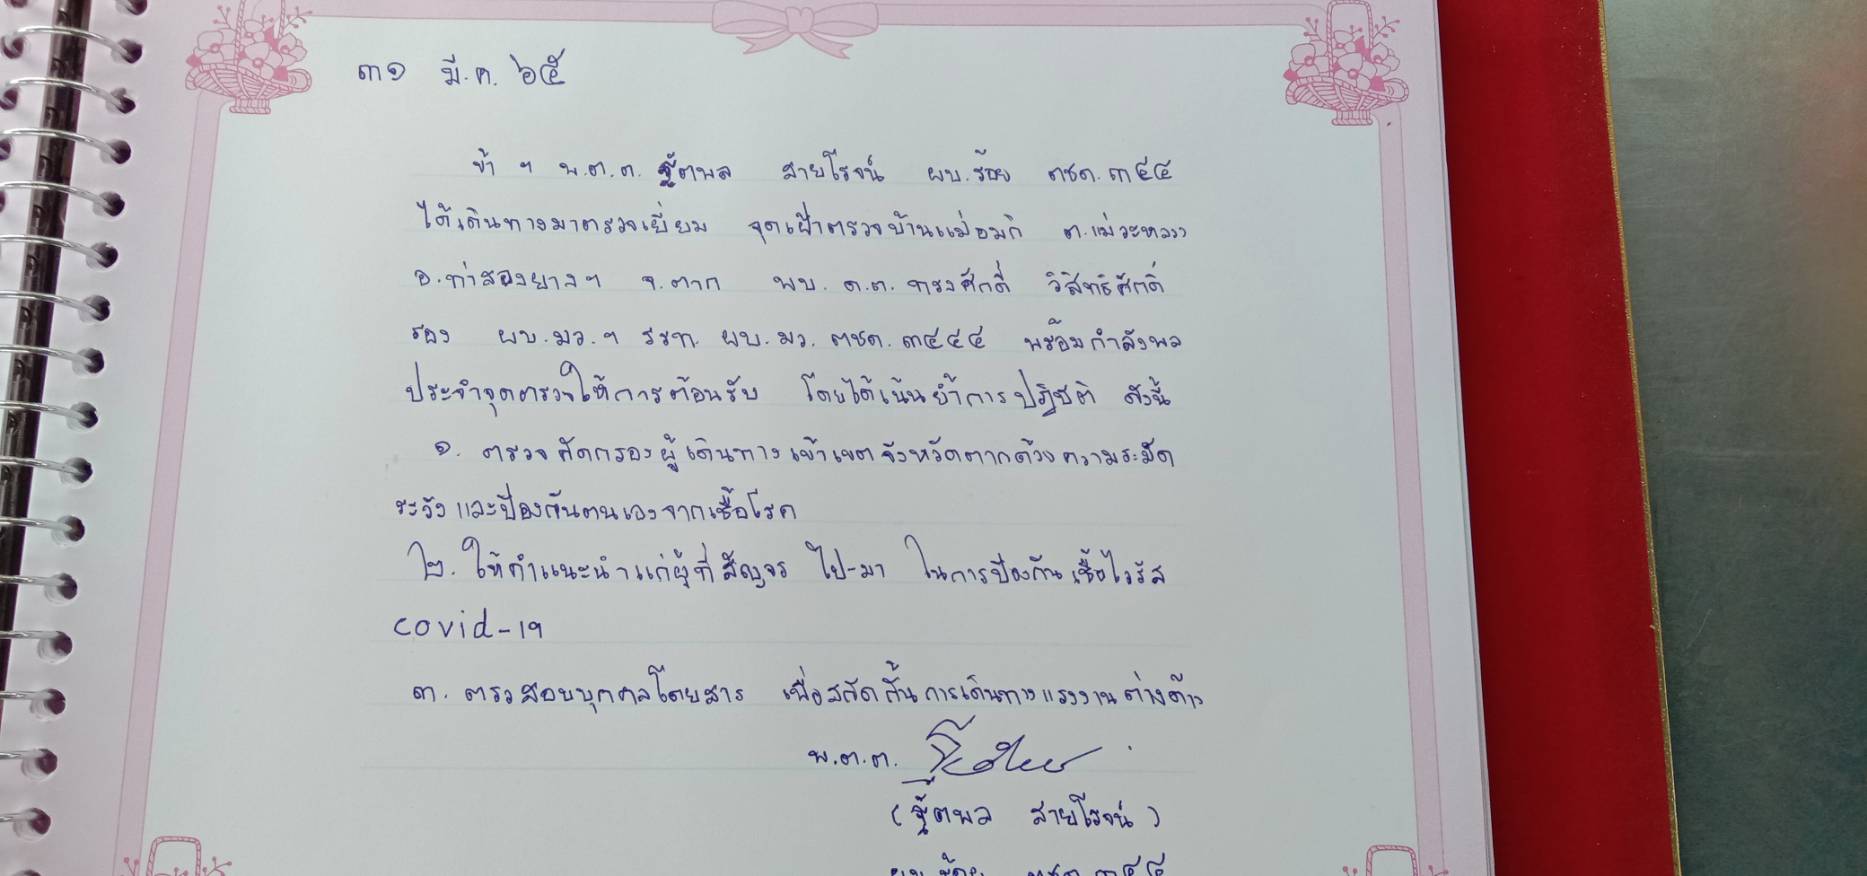 ๓๑ มี.ค. ๖๕
ข้า ฯ พ.ต.ต. ฐิตพล สายโรจน์ ผบ.ร้อย ตชด.๓๔๔
ได้เดินทางมาตรวจเยี่ยม จุดเฝ้าตรวจบ้านแม่อมกิ ต.แม่วะหลวง
อ.ท่าสองยางฯ จ.ตาก พบ ด.ต. ทรงศักดิ์ วิสิทธิศักดิ์
รอง ผบ.มว.ฯ รรท. ผบ.มว. ตชด.๓๔๔๔ พร้อมกำลังพล
ประจำจุดตรวจให้การต้อนรับ โดยได้เน้นย้ำการปฏิบัติ ดังนี้
๑. ตรวจคัดกรองผู้เดินทางเข้าเขตจังหวัดตากด้วยความระมัด
ระวังและป้องกันตนเองจากเชื้อโรค
๒. ให้คำแนะนำแก่ผู้ที่สัญจร ไป-มา ในการป้องกันเชื้อไวรัส
covid-19
๓. ตรวสอบบุคคลโดยสาร เพื่อสกัดกั้นการเดินทางแรงงานต่างด้าว
พ.ต.ต.
(ฐิตพล สายโรจน์)
ผบ.ร้อย ตชด.๓๔๔